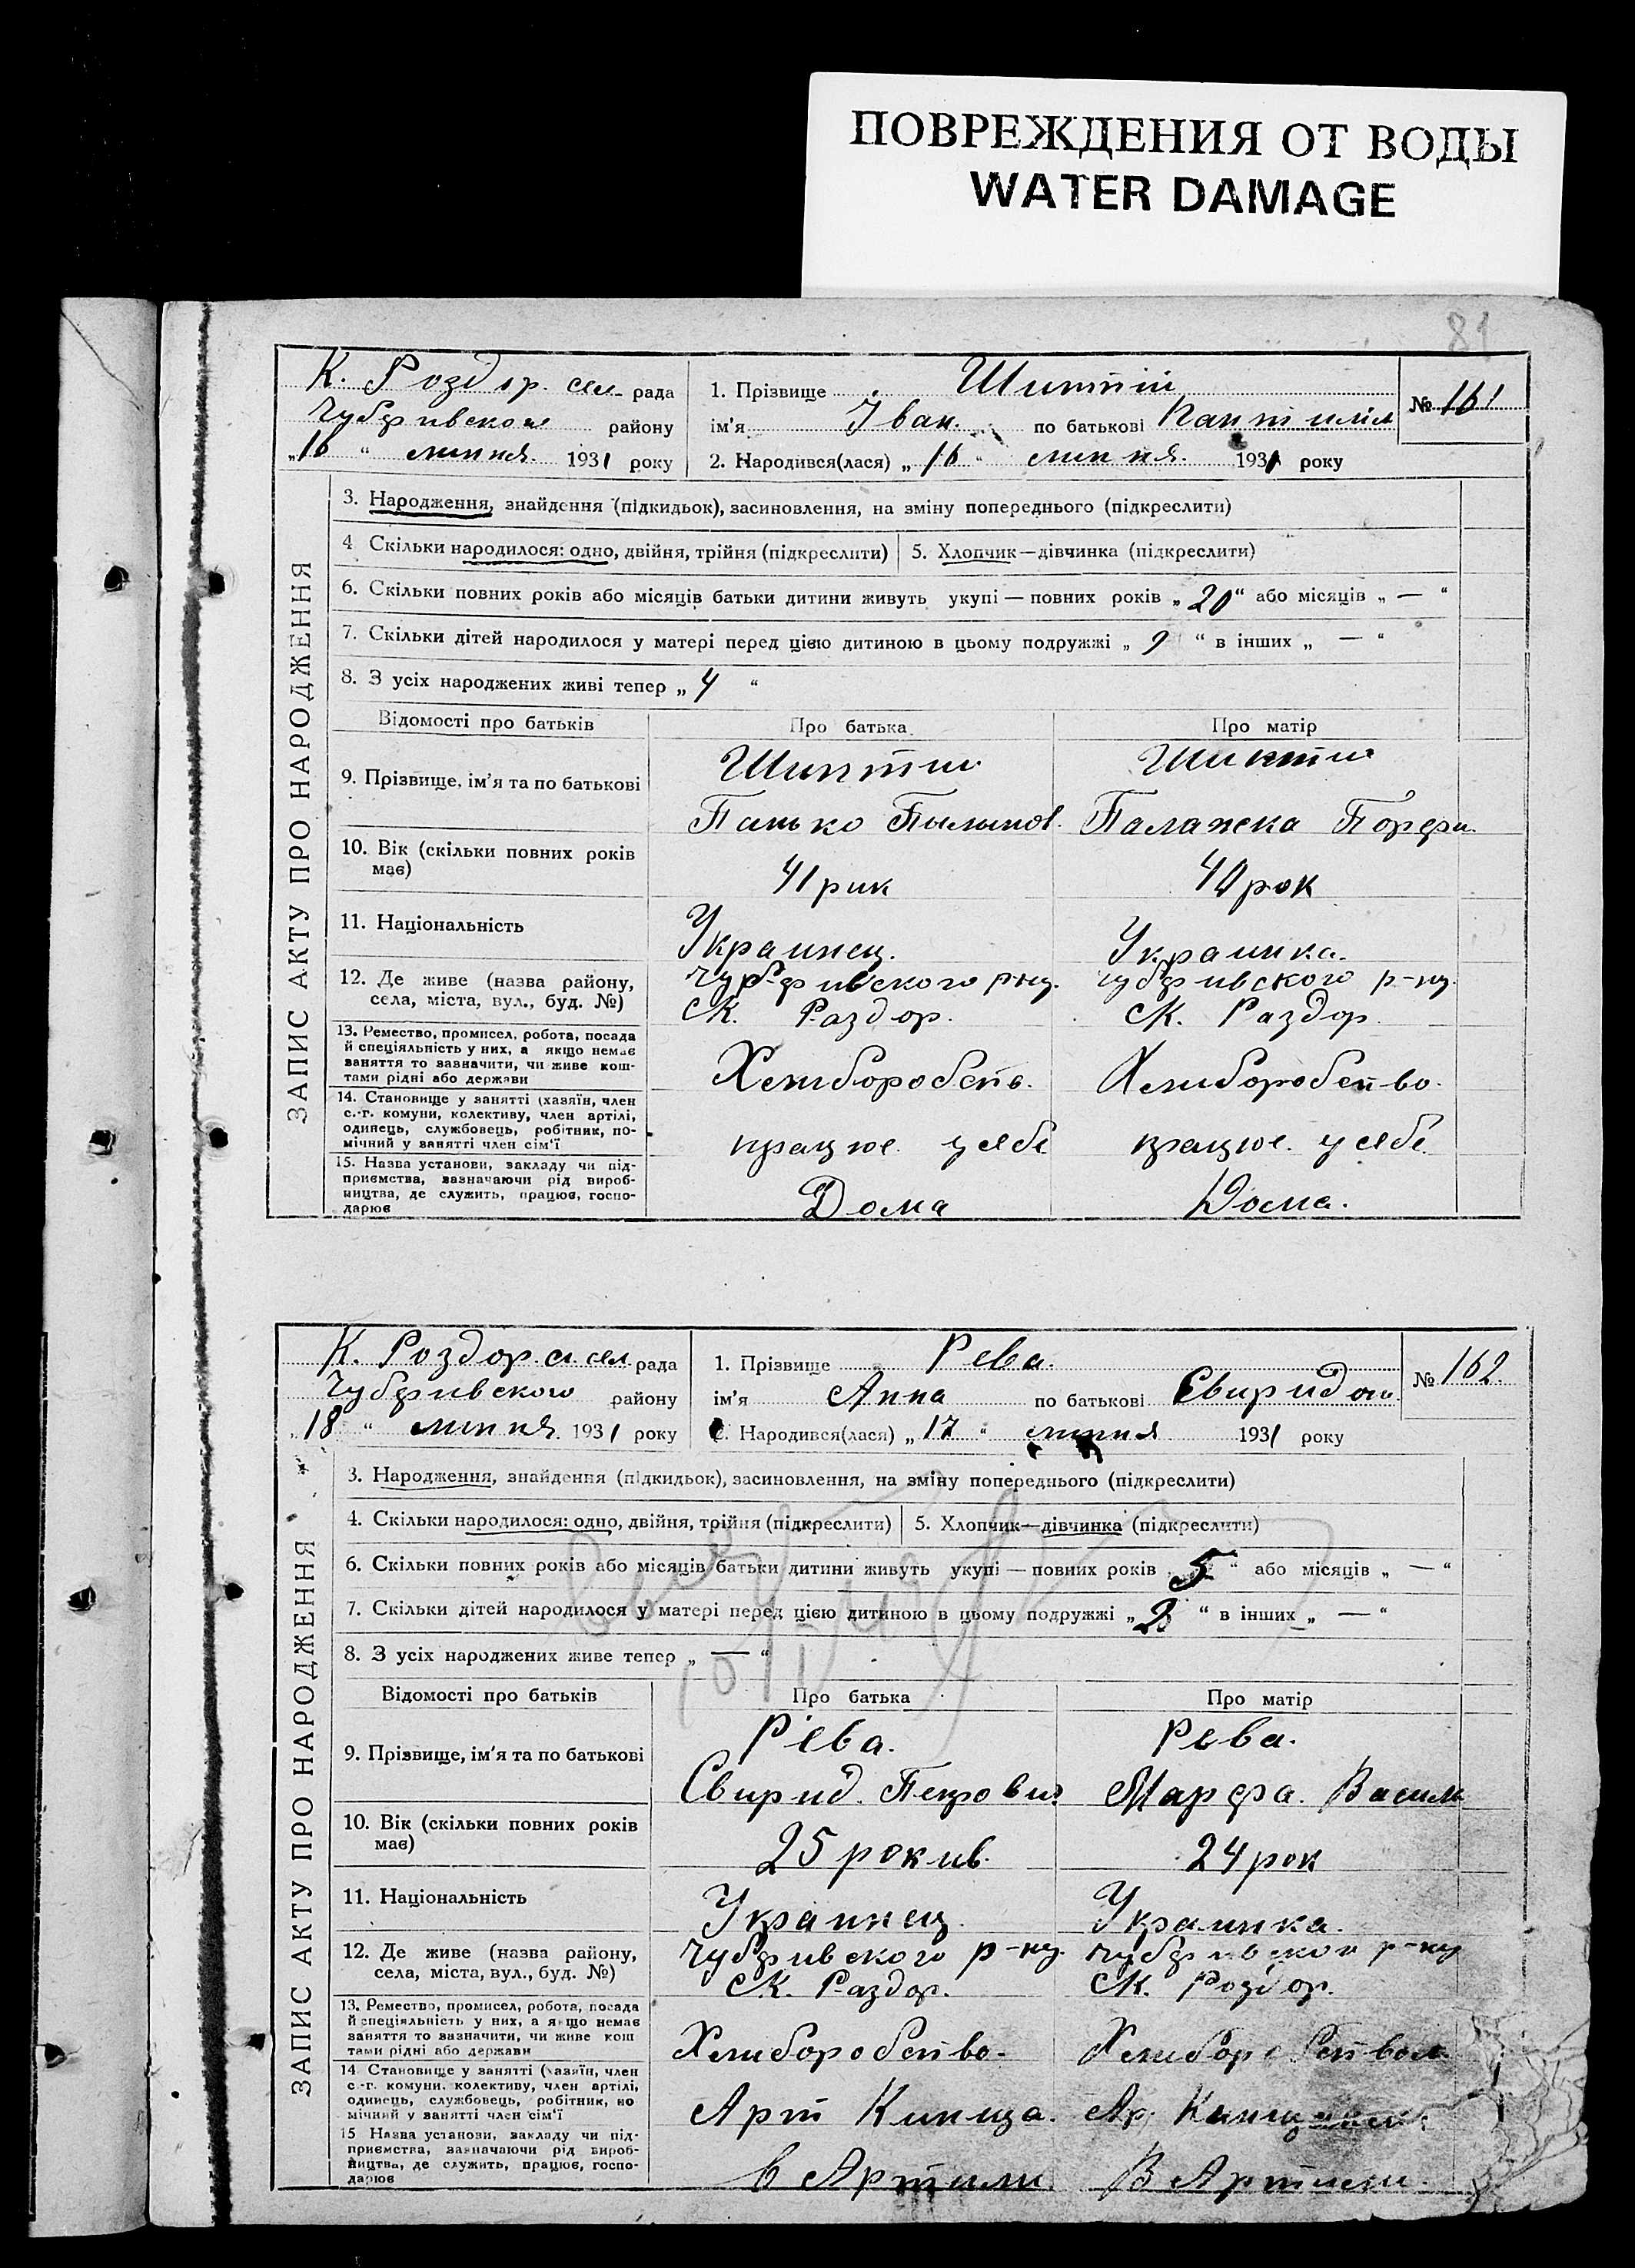 ПОВРЕЖДЕНИЯ ОТ ВОДЫ
WATER DAMAGE
81
К. Роздор. сел. рада
Чубфривского району
"16 " липня 1931 року
1. Прізвище
ім'я Іван. по батькові
2. Народився(лася) „ 16 " липня. 1931 року
№ 161
ЗАПИС АКТУ ПРО НАРОДЖЕННЯ
3. Народження, знайдення (підкидьок), засиновлення, на зміну попереднього (підкреслити)
4 Скільки народилося: одно, двійня, трійня (підкреслити) 5. Хлопчик—дівчинка (підкреслити)
6. Скільки повних років або місяців батьки дитини живуть укупі — повних років „ 20 “ або місяців „ — “
7. Скільки дітей народилося у матері перед цією дитиною в цьому подружжі „ 9 “ в інших „ — “
8. З усіх народжених живі тепер „ 4 “
Відомості про батьків Про батька Про матір
9. Прізвище, ім'я та по батькові
Панько Палажка
10. Вік (скільки повних років має)
41 рик 40 рок
11. Національність
Украинец. Украинка.
12. Де живе (назва району, села, міста, вул., буд. №)
р-ну. р-ну.
СК. Раздор. СК. Раздор
13. Ремество, промисел, робота, посада
й спеціяльність у них, а якщо немає
заняття то зазначити, чи живе кош-
тами рідні або держави
Хлиборобств. Хлиборобство.
14. Становище у занятті (хазяїн, член
с.-г. комуни, колективу, член артілі,
одинець, службовець, робітник, по-
мічний у занятті член сім'ї
працює. у себе працює. у себе.
15. Назва установи, закладу чи під-
приємства, зазначаючи рід вироб-
ництва, де служить, працює, госпо-
дарює
Дома Дома.
К. Роздорск сел. рада
Чубфривского району
„ 18 “ липня 1931 року
1. Прізвище Рева.
ім'я Анна по батькові Свиридов
2. Народився(лася) „ 17 “ липня 1931 року
№ 162.
ЗАПИС АКТУ ПРО НАРОДЖЕННЯ
3. Народження, знайдення (підкидьок), засиновлення, на зміну попереднього (підкреслити)
4. Скільки народилося: одно, двійня, трійня (підкреслити) 5. Хлопчик—дівчинка (підкреслити)
6. Скільки повних років або місяців батьки дитини живуть укупі — повних років 5 “ або місяців „ — “
7. Скільки дітей народилося у матері перед цією дитиною в цьому подружжі „ 2 “ в інших „ — “
8. З усіх народжених живе тепер „ — “
Відомості про батьків Про батька Про матір
9. Прізвище, ім'я та по батькові
Рева. Рева.
Свирид. Петрович Марфа. Васил
10. Вік (скільки повних років має)
25 рокив. 24 рок
11. Національність
Украинец. Украинка.
12. Де живе (назва району, села, міста, вул., буд. №)
Чубфривского р-ну. р-ну
СК. Раздор. СК. Роздор.
13. Ремество, промисел, робота, посада
й спеціяльність у них, а якщо немає
заняття то вазначити, чи живе кош
тами рідні або держави
Хлиборобство. Хлиборобством
14 Становище у занятті (хазяїн, член
с.-г. комуни, колективу, член артілі,
одинець, службовець, робітник, по
мічний у занятті член сім'ї
Арт Ар.
15 Назва установи, закладу чи під-
приємства, зазначаючи рід вироб-
ництва, де служить, працює, госпо-
дарює
в Артили. В Артили.